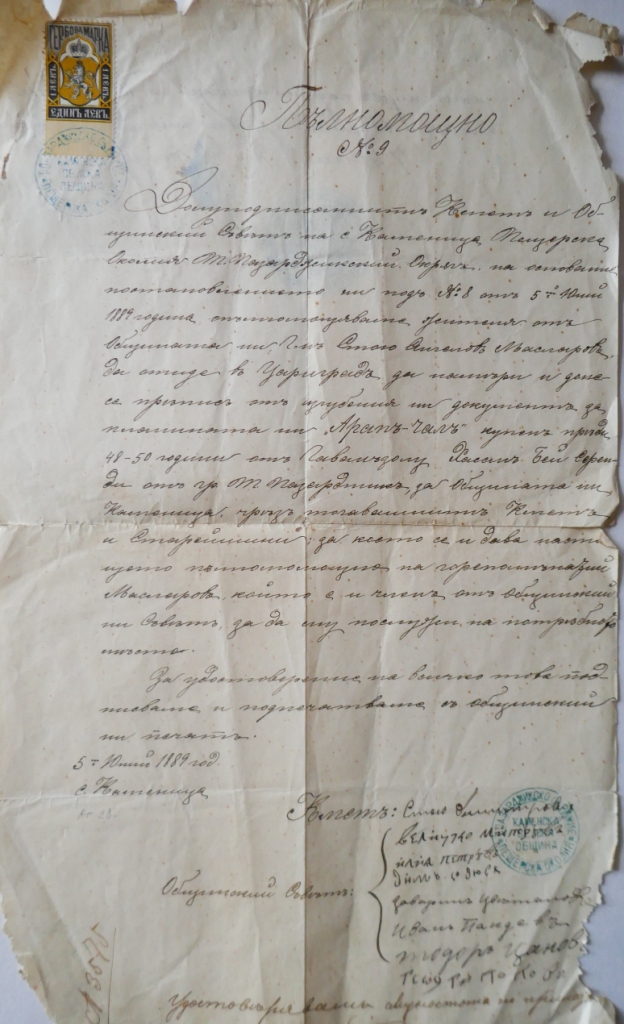 ГЕРБОВА МАРКА
1 ЛЕВЪ. 1 ЛЕВЪ.
ЕДИНЪ ЛЕВЪ.
СЕЛСКА
ОБЩИНА
Пълномощно
№ 9
Долуподписаннитъ Кметъ и Об-
щинский Съвѣтъ на с. Каменица Пещерска
Околия Т. Пазарджикский Окрѫгъ, на основание
постановлението ни подъ № 8 отъ 5-й Юний
1889 година опълномощяваме жителя отъ
Общината ни Г-нъ Стою Ангеловъ Масларовъ,
да отиде въ Цариградъ да намѣри и доне-
се прѣписъ отъ изгубения ни документъ за
планината ни „Арапъ-Чалъ" купенъ прѣди
48-50 години отъ Хассанъ Бей
отъ гр. Т. Пазарджикъ за Общината ни
Каменица, чрѣзъ тогавашниитъ Кметъ
и Старейшини; за което се и дава насто-
ящето пълномощно на горепоменътий
Масларовъ, който е и членъ отъ общинский
ни Съвѣтъ, за да му послужи на потрѣбното
мѣсто.
За удостоверение на всичко това под-
писваме и подпечатваме съ общинский
ни печатъ.
5-й Юний 1889 год.
с. Каменица
Кметъ: Стою Димитровъ
КАМЕНСКА
ОБЩИНА
Общинский Съвѣтъ:
илия петровъ
Иванъ Пандевъ
тодоръ Цановъ